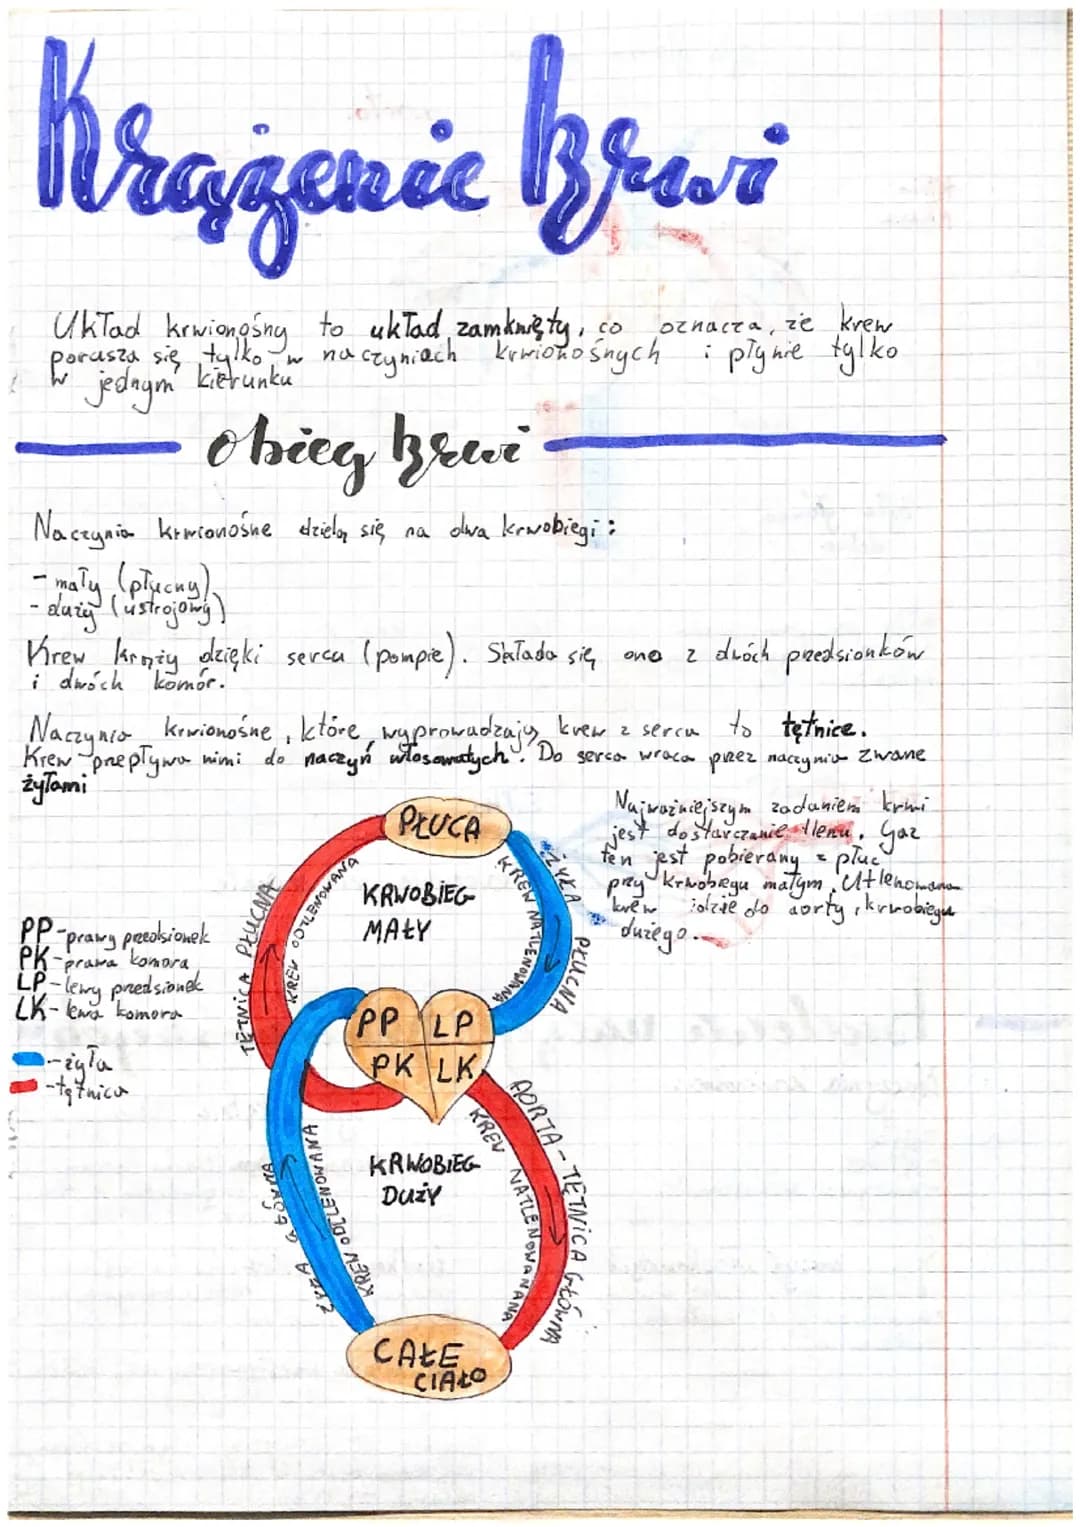 Krążenie krwi
Układ krwionośny to układ zamknięty, co oznacza, że krew
porusza się tylko w naczyniach krwionośnych i płynie tylko
w jednym kierunku
obieg krwi
Naczynia krwionośne dzielą się na dwa krwobiegi:
- mały (płucny)
- duży (ustrojowy)
Krew krąży dzięki sercu (pompie). Składa się ono z dwóch przedsionków
i dwóch komór.
Naczynia krwionośne, które wyprowadzają krew z serca to tętnice.
Krew przepływa nimi do naczyń włosowatych. Do serca wraca przez naczynia zwane
żyłami
Najważniejszym zadaniem krwi
jest dostarczanie tlenu. Gaz
ten jest pobierany z płuc
przy krwobiegu małym. Utlenowana
krew idzie do aorty, krwobiegu
dużego.
PŁUCA
KRWOBIEG
MAŁY
TĘTNICA PŁUCNA
KREW ODTLENOWANA
ŻYŁA PŁUCNA
KREW NATLENOWANA
PP-prawy przedsionek
PK-prawa komora
LP-lewy przedsionek
LK-lewa komora
-żyła
-tętnica
PP LP
PK LK
KRWOBIEG
DUŻY
ŻYŁA GŁÓWNA
KREW ODTLENOWANA
AORTA - TĘTNICA GŁÓWNA
KREW NATLENOWANANA
CAŁE
CIAŁO